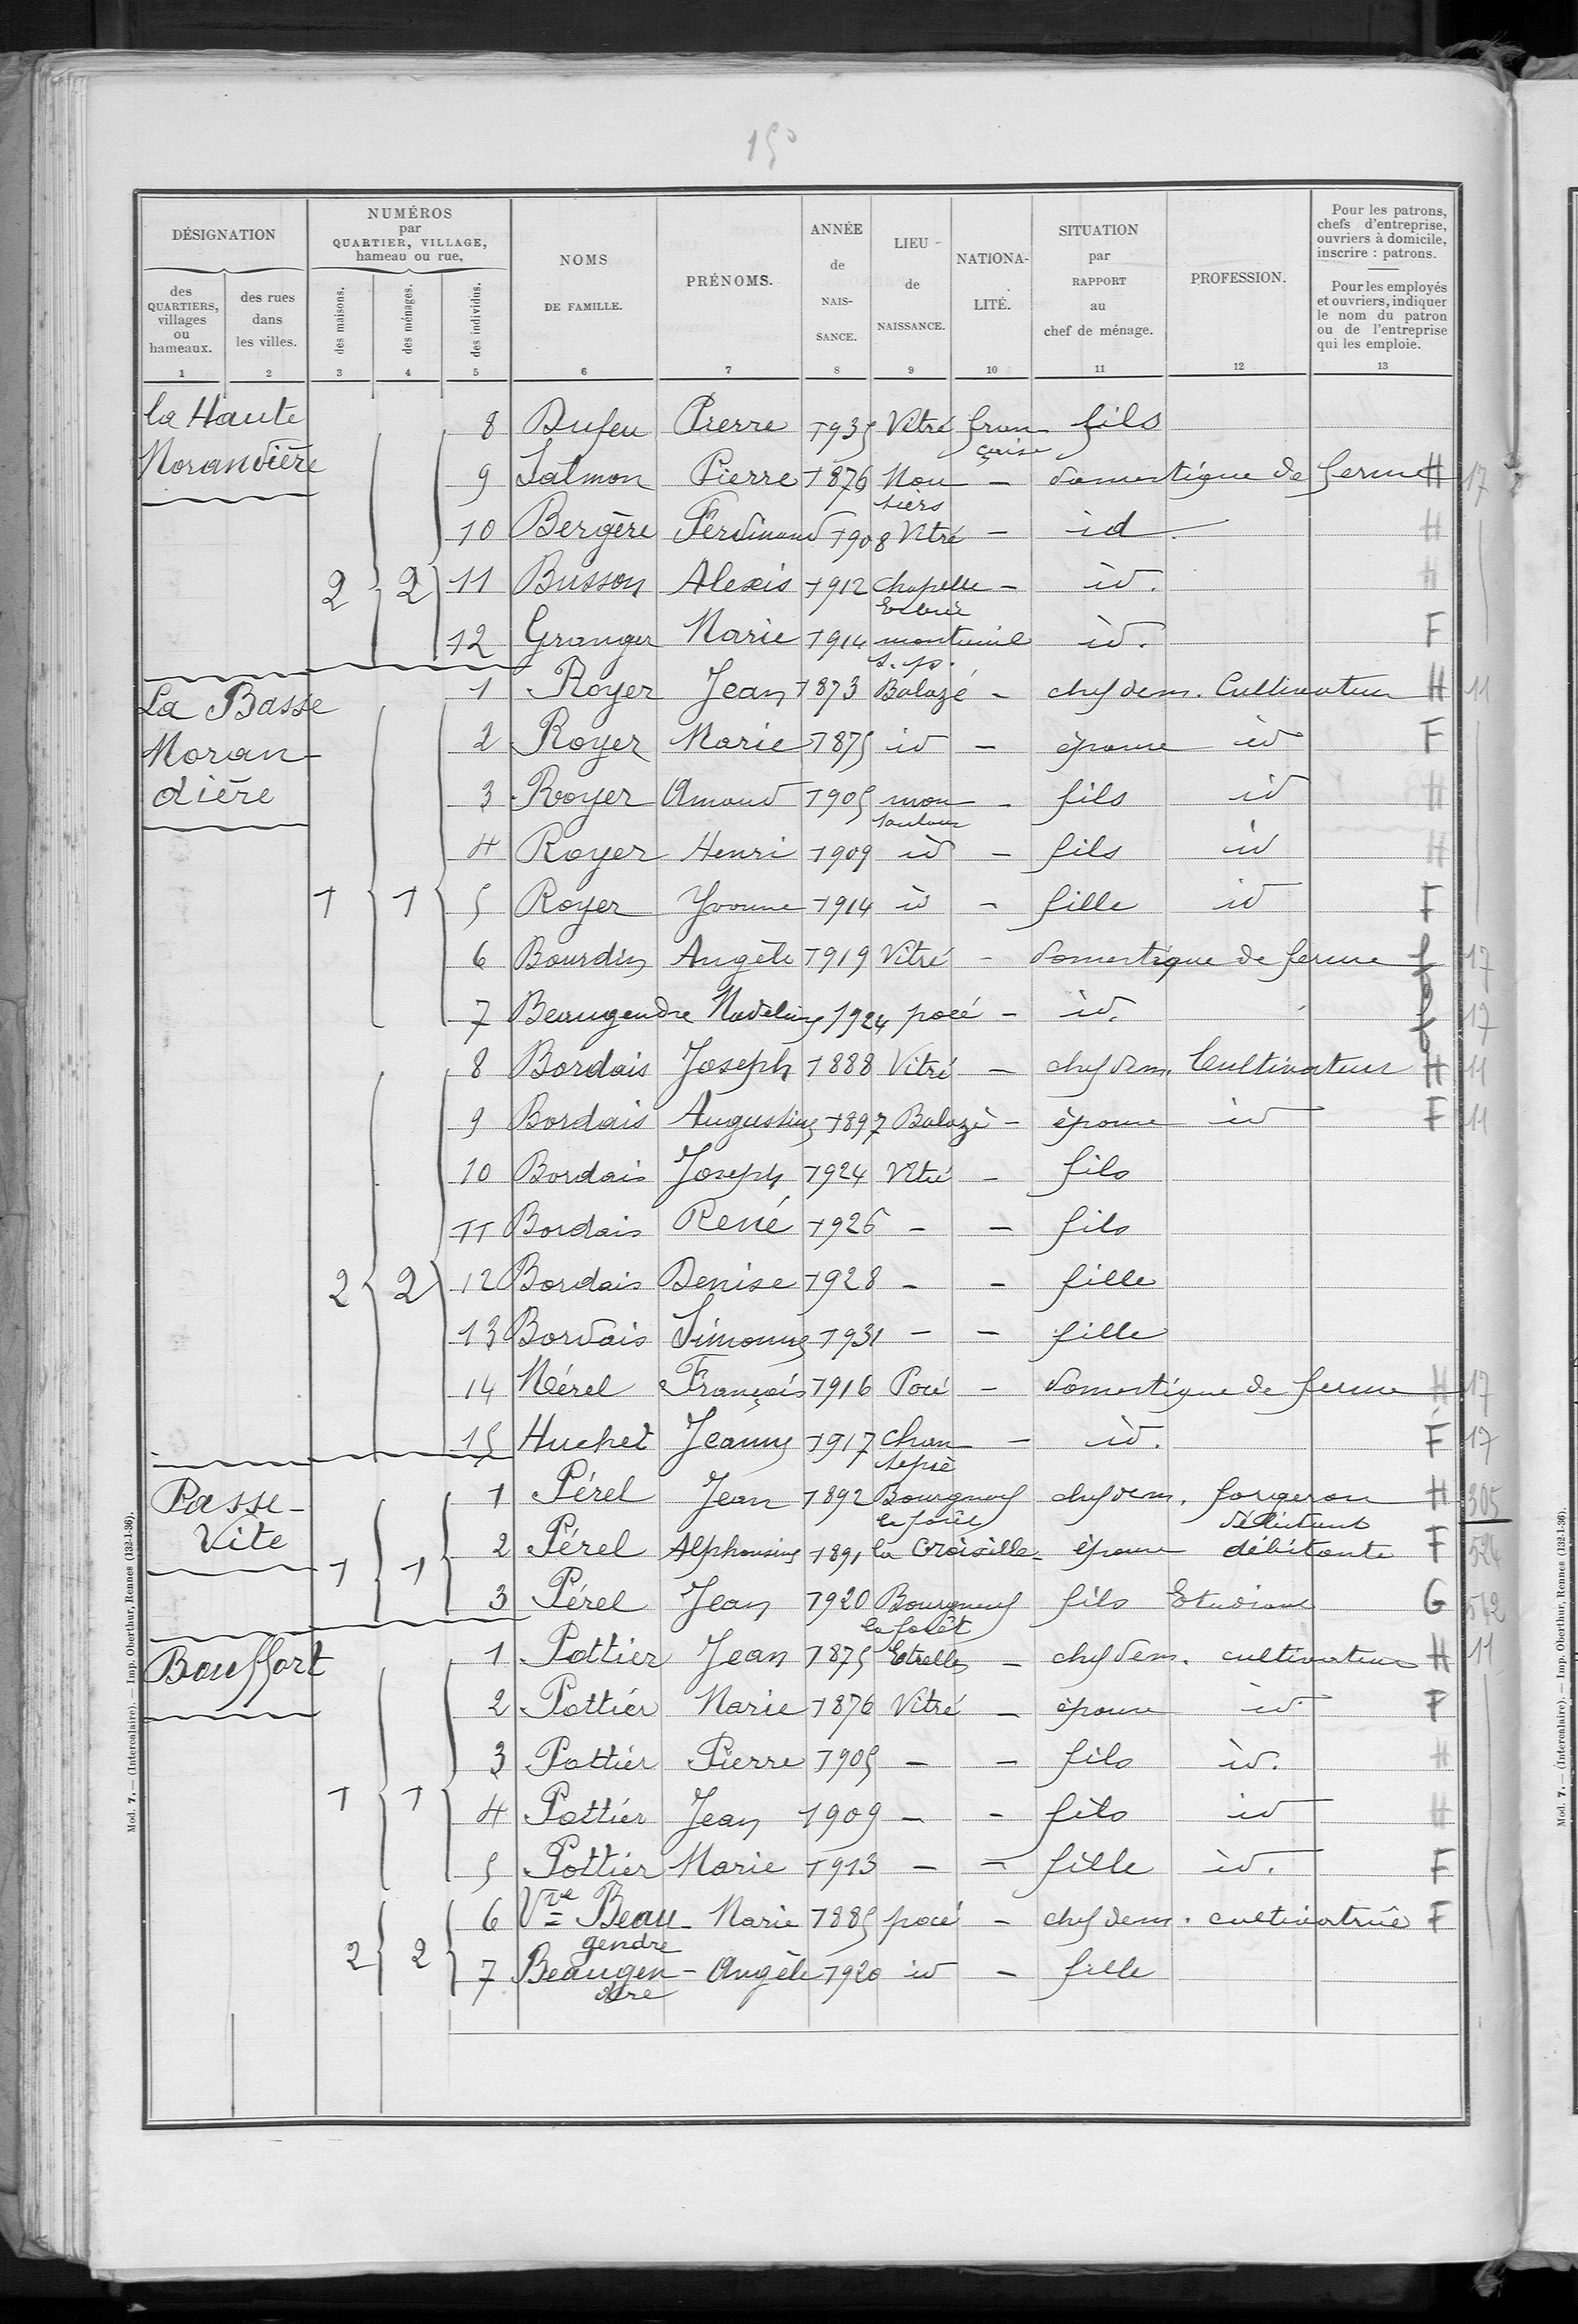 150
DÉSIGNATION
NUMÉROS
par
QUARTIER, VILLAGE,
hameau ou rue,
NOMS
DE FAMILLE.
PRÉNOMS.
ANNÉE
de
NAIS-
SANCE.
LIEU
de
NAISSANCE.
NATIONA-
LITÉ.
SITUATION
par
RAPPORT
au
chef de ménage.
PROFESSION.
Pour les patrons,
chefs d'entreprise,
ouvriers à domicile,
inscrire : patrons.
Pour les employés
et ouvriers, indiquer
le nom du patron
ou de l'entreprise
qui les emploie.
des
QUARTIERS,
villages
ou
hameaux.
des rues
dans
les villes.
des maisons.
des ménages.
des individus.
1 2 3 4 5 6 7 8 9 10 11 12 13
la Haute
Morandière
8 Dufeu Pierre 1935 Vitré fran fils
çaise
9 Salmon Pierre 1876 Mou - domestique de ferme H 17
tiers
10 Bergère Ferdinand 1908 Vitré - id. H
2 2 11 Busson Alexis 1912 Chapelle - id. H
Erbrée
12 Granger Marie 1914 montreuil id. F
s. p.
La Basse
Moran-
dière
1 Royer Jean 1873 Balazé - chef de m. Cultivateur H 11
2 Royer Marie 1875 id - épouse id F
3 Royer Amand 1905 mon - fils id H
tautour
4 Royer Henri 1909 id - fils id H
1 1 5 Royer Yvonne 1914 id - fille id F
6 Bourdin Angèle 1919 Vitré - domestique de ferme 17
7 Beaugendre Madeleine 1924 pocé - id. 17
8 Bordais Joseph 1888 Vitré - chef de m. Cultivateur H 11
9 Bordais Augustine 1897 Balazé - épouse id F 11
10 Bordais Joseph 1924 Vitré - fils
11 Bordais René 1926 - - fils
2 2 12 Bordais Denise 1928 - - fille
13 Bordais Simonne 1931 - - fille
14 Mérel François 1916 Pocé - domestique de ferme H 17
15 Huchet Jeanne 1917 Chan - id. F 17
tepie
Passe-
Vite
1 Pérel Jean 1892 Bourgneuf chef de m. forgeron H 305
la forêt débitant
1 1 2 Pérel Alphonsine 1891 la Croixille - épouse débitante F 524
3 Pérel Jean 1920 Bourgneuf fils Etudiant G 542
la forêt
Bouffort
1 Pottier Jean 1875 Etrelles - chef de m. cultivateur H 11
2 Pottier Marie 1876 Vitré - épouse id F
3 Pottier Pierre 1905 - - fils id. H
1 1 4 Pottier Jean 1909 - - fils id H
5 Pottier Marie 1913 - - fille id. F
6 Vve Beau- Marie 1885 pocé - chef de m. cultivatrice F
gendre
2 2 7 Beaugen- Angèle 1920 id - fille
dre
Mod. 7. — (Intercalaire). — Imp. Oberthur, Rennes (132-1-36).
Mod. 7. — (Intercalaire). — Imp. Oberthur, Rennes (132-1-36).